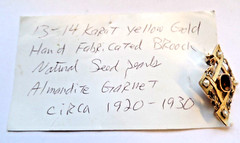 13-14 Karat Yellow Gold
Hand Fabricated Brooch
Natural Seed pearls
Almandite Garnet
circa 1920-1930